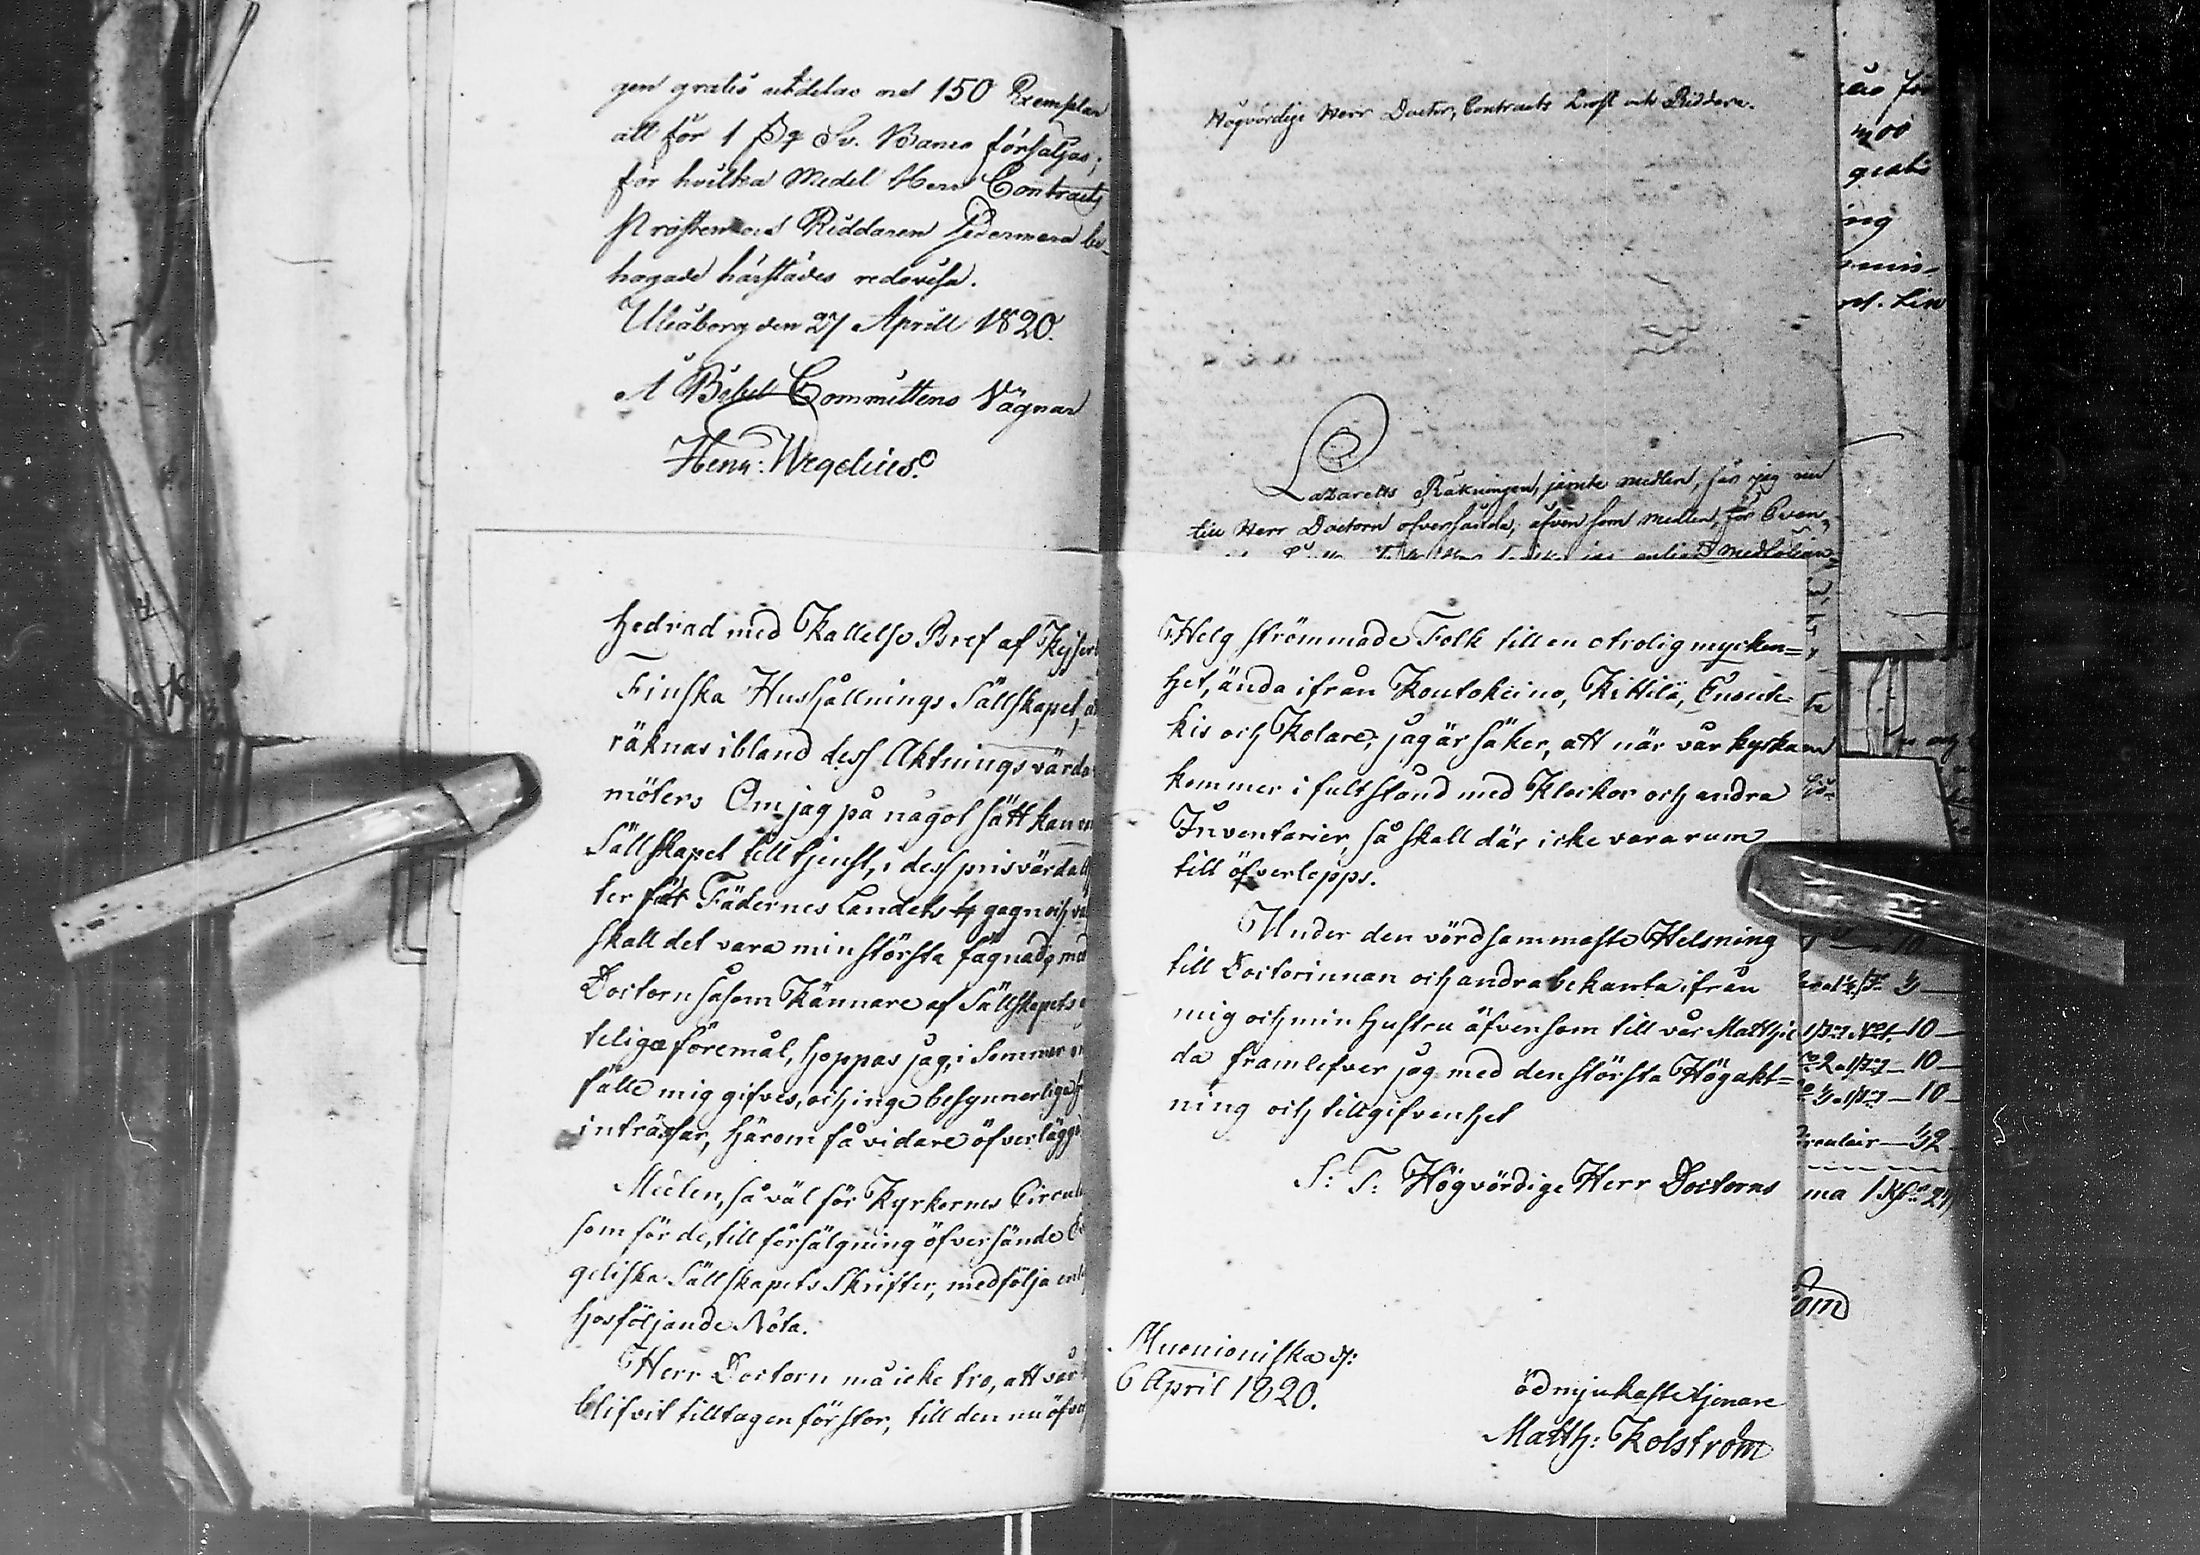 gen gratis utdelas med 150 Exemplar
att för 1 Sv. Banco försäljas;
för hvilka Medel Herr Contracts
Prosten och Riddaren hedermera be-
hagade härstädes redovisa.
Uleåborg den 27 Aprill 1820.
Å Bibel Committens Vägnar
Henr: Wegelius.
hedrad med Kallelse Bref af Kejserl
Finska Hushållnings Sällskapet, at
räknas ibland dess Aktningsvärda
möters Om jag på något sätt kan
Sällskapet till tjenst, i dess prisvärda
ter för Fädernes Landets gagn och
skall det vara min största fägnad, med
Doctorn såsom Kännare af Sällskapets
teliga föremål, hoppas jag, i Sommar
fälle mig gifves, och inga besynnerliga
inträffar, härom få vidare öfverlägga
Medlen, så väl för Kyrkornes Circul
som för de, till försälgning öfversände
geliska Sällskapets Skrifter, medfölja enl
hosföljande Nota.
Herr Doctorn må icke tro, att vår
blifvit tilltagen för stor, till den nu öfver
Högvördige Herr Doctor, Contracts Prost och Riddare.
Lazaretts Räkningen, jämte medlen, får jag nu
till Herr Doctorn öfversända, äfven som medlen, för Evan-
jag enligt medfölian
Helg strömmade Folk till en otrolig mycken=
het, ända ifrån Koutokeino, Kittilä, Enonte-
kis och Kolare; jag är säker, att när vår kyrka
kommer i fult stånd med Klockor och andra
Inventarier, så skall där icke vara rum
till öfverlopps.
Under den vördsammaste Helsning
till Doctorinnan och andra bekanta ifrån
mig och min hustru äfvensom till vår Mathil
da framlefver jag med den största Högakt=
ning och tillgifvenhet
S: T: Högvördige Herr Doctorns
Muonioniska d:
6 April 1820.
ödmjukaste tjenare
Matth: Kolström
gratis
ing
10
10
10
32